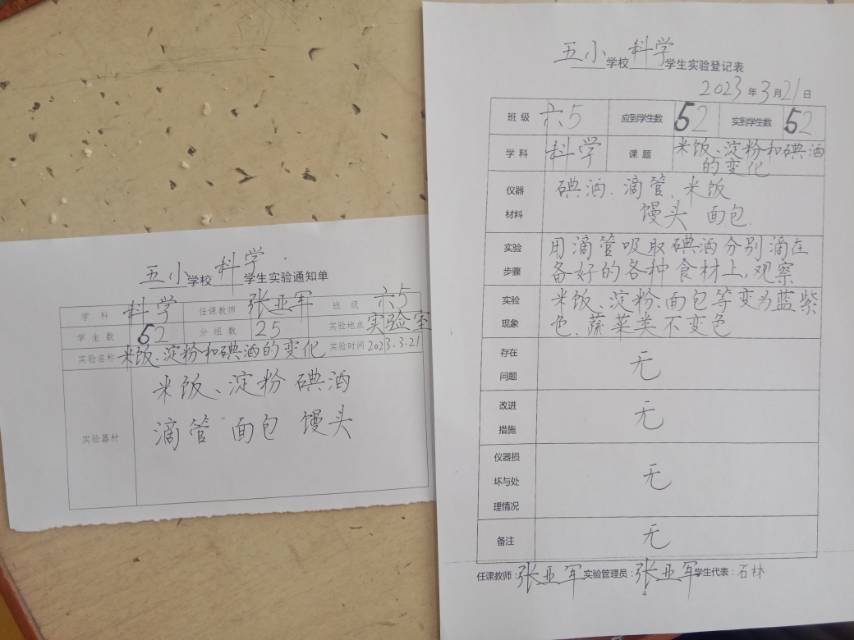 五小学校科学学生实验通知单
学科 科学 任课教师 张亚军 班级 六5
学生数 52 分组数 25 实验地点 实验室
实验名称 米饭、淀粉和碘酒的变化 实验时间 2023.3.21
实验器材
米饭、淀粉 碘酒
滴管 面包 馒头
五小学校科学学生实验登记表
2023年3月21日
班级 六5 应到学生数 52 实到学生数 52
学科 科学 课题 米饭、淀粉和碘酒
的变化
仪器 碘酒、滴管、米饭
材料 馒头 面包
实验 用滴管吸取碘酒分别滴在
步骤 备好的各种食材上,观察
实验 米饭、淀粉、面包等变为蓝紫
现象 色、蔬菜类不变色
存在
问题
无
改进
措施
无
仪器损
坏与处
理情况
无
备注 无
任课教师:张亚军 实验管理员:张亚军 学生代表:石林